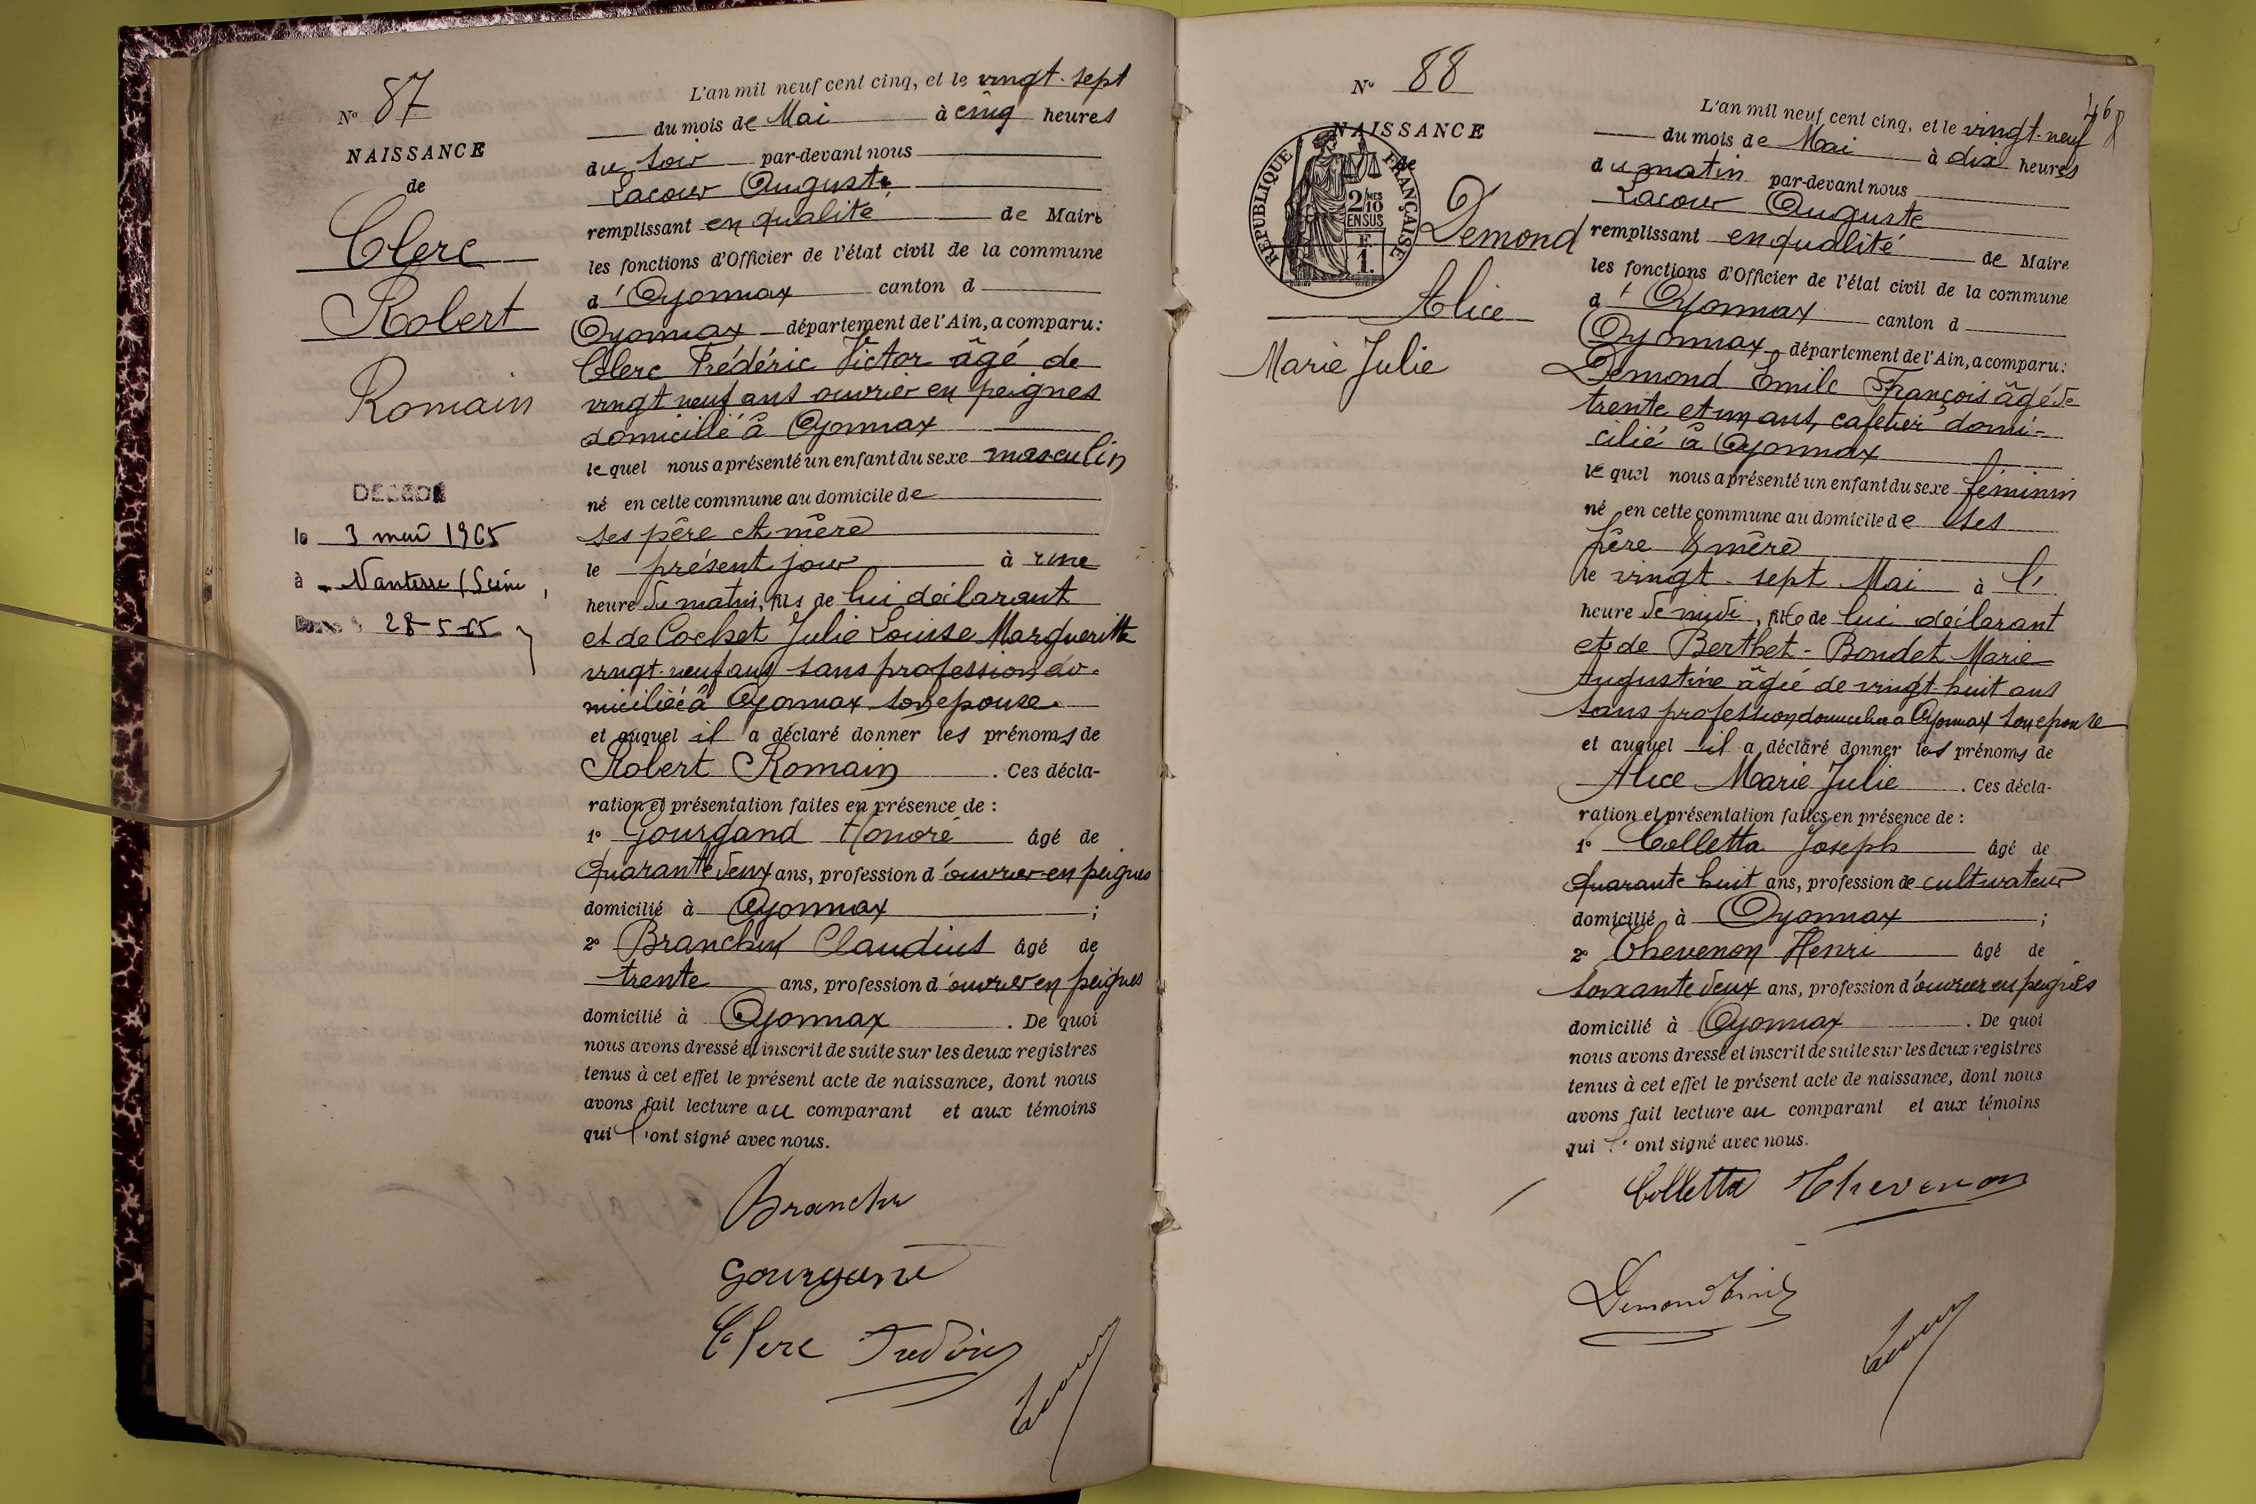 N° 87
NAISSANCE
de
Clerc
Robert
Romain
DÉCÉDÉ
le 3 mai 1965
à Nanterre (Seine
28-5-65
L'an mil neuf cent cinq, et le vingt-sept
du mois de Mai à cinq heures
du soir par-devant nous
Lacour Auguste
remplissant en qualité de Maire
les fonctions d'Officier de l'état civil de la commune
d'Oyonnax canton d
Oyonnax département de l'Ain, a comparu :
Clerc Frédéric Victor âgé de
vingt neuf ans ouvrier en peignes
domicilié à Oyonnax
le quel nous a présenté un enfant du sexe masculin
né en cette commune au domicile de
ses père et mère
le présent jour à une
heure du matin, fils de lui déclarant
et de Cochet Julie Louise Marguerite
vingt-neuf ans sans profession do-
miciliée à Oyonnax son epouse.
et auquel il a déclaré donner les prénoms de
Robert Romain. Ces décla-
ration et présentation faites en présence de :
1° Gourgand Honoré âgé de
quarante deux ans, profession d'ouvrier en peignes
domicilié à Oyonnax ;
2° Branchu Claudius âgé de
trente ans, profession d'ouvrier en peignes
domicilié à Oyonnax. De quoi
nous avons dressé et inscrit de suite sur les deux registres
tenus à cet effet le présent acte de naissance, dont nous
avons fait lecture au comparant et aux témoins
qui l'ont signé avec nous.
Branchu
Gourgand
Clerc Frédéric
Lacour
468
N° 88
NAISSANCE
de
RÉPUBLIQUE FRANÇAISE
2/10
EN SUS
F.
1.
Demond
Alice
Marie Julie
L'an mil neuf cent cinq, et le vingt-neuf
du mois de Mai à dix heures
du matin par-devant nous
Lacour Auguste
remplissant en qualité de Maire
les fonctions d'Officier de l'état civil de la commune
d'Oyonnax canton d
Oyonnax département de l'Ain, a comparu :
Demond Emile François âgé de
trente et un ans, cafetier domi-
cilié à Oyonnax
le quel nous a présenté un enfant du sexe féminin
né en cette commune au domicile de ses
père & mère
le vingt-sept Mai à l'
heure de midi, fille de lui déclarant
et de Berthet-Bondet Marie
Augustine âgée de vingt-huit ans
sans profession domiciliée à Oyonnax son epouse
et auquel il a déclaré donner les prénoms de
Alice Marie Julie. Ces décla-
ration et présentation faites en présence de :
1° Colletta Joseph âgé de
quarante huit ans, profession de cultivateur
domicilié à Oyonnax ;
2° Chevenon Henri âgé de
soixante deux ans, profession d'ouvrier en peignes
domicilié à Oyonnax. De quoi
nous avons dressé et inscrit de suite sur les deux registres
tenus à cet effet le présent acte de naissance, dont nous
avons fait lecture au comparant et aux témoins
qui l'ont signé avec nous.
Colletta Chevenon
Demond Emile
Lacour